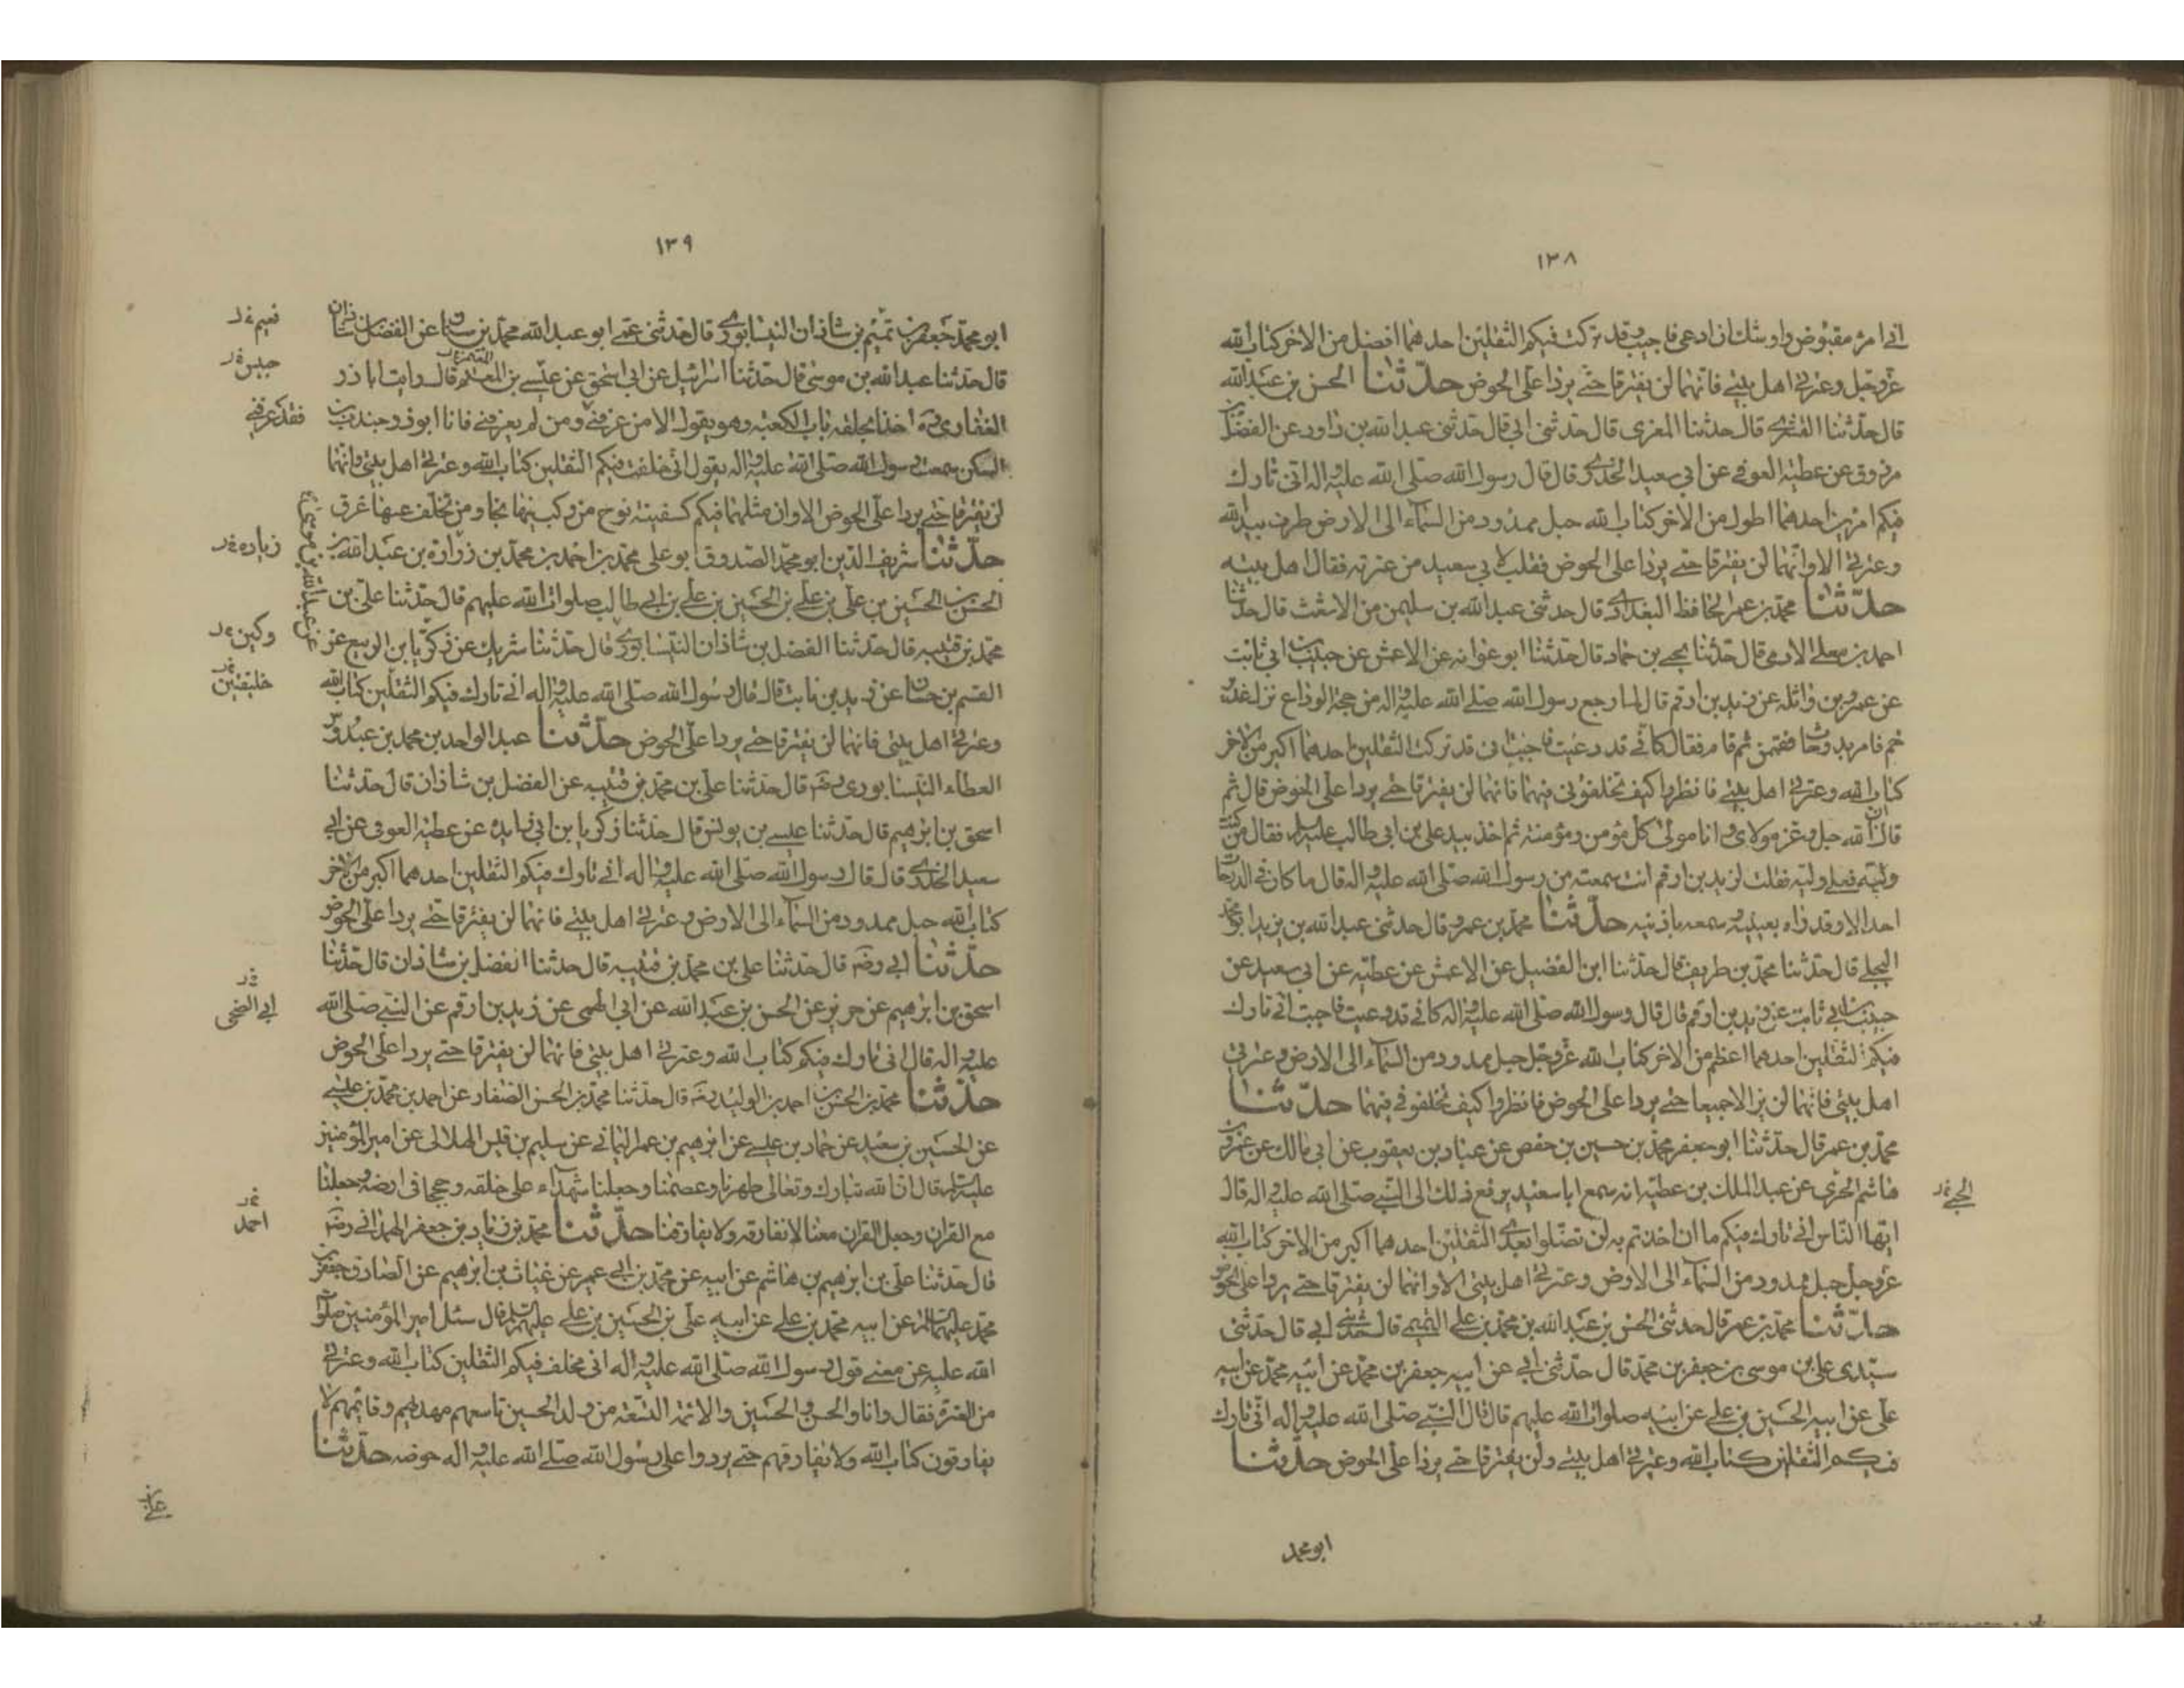 ١٣٨
اني امرؤ مقبوض واوشك ان ادعى فاجيب وقد تركت فيكم الثقلين احدهما افضل من الاخر كتاب الله
عزوجل وعترتي اهل بيتي فانهما لن يفترقا حتى يردا علي الحوض حدّثنا الحسن بن عبدالله
قال حدثنا القشيري قال حدثنا المغرى قال حدثني ابي قال حدثني عبدالله بن داود عن الفضيل بن
مرزوق عن عطية العوفي عن ابي سعيد الخدري قال قال رسول الله صلى الله عليه واله اني تارك
فيكم امرين احدهما اطول من الاخر كتاب الله حبل ممدود من السماء الى الارض طرف بيد الله
وعترتي الا وانهما لن يفترقا حتى يردا على الحوض فقلت لابي سعيد من عترته فقال اهل بيته
حدّثنا محمد بن عمر الحافظ البغدادي قال حدثني عبدالله بن سليمن من الاشعث قال حدثنا
احمد بن معلى الادمى قال حدثنا يحيى بن حماد قال حدثنا ابو عوانه عن الاعمش عن حبيب بن ابي ثابت
عن عمرو بن واثلة عن زيد بن ارقم قال لما رجع رسول الله صلى الله عليه واله من حجة الوداع نزل غدير
خم فامر بدوحات فقممن ثم قام فقال كاني قد دعيت فاجبت اني قد تركت الثقلين احدهما اكبر من الاخر
كتاب الله وعترتي اهل بيتي فانظروا كيف تخلفوني فيهما فانهما لن يفترقا حتى يردا علي الحوض قال ثم
قال ان الله جل وعز مولاى وانا مولى كل مؤمن ومؤمنة ثم اخذ بيد علي بن ابي طالب عليه السلام فقال من كنت
وليه فعلي وليه فقلت لزيد بن ارقم انت سمعته من رسول الله صلى الله عليه واله قال ما كان في الدوحات
احد الا وقد راه بعينيه وسمعه باذنيه حدّثنا محمد بن عمر قال حدثني عبدالله بن يزيد ابو محمد
البجلي قال حدثنا محمد بن طريف قال حدثنا ابن الفضيل عن الاعمش عن عطيه عن ابي سعيد عن
حبيب بن ابي ثابت عن زيد بن ارقم قال قال رسول الله صلى الله عليه واله كاني قد دعيت فاجبت اني تارك
فيكم الثقلين احدهما اعظم من الاخر كتاب الله عزوجل حبل ممدود من السماء الى الارض وعترتي
اهل بيتي فانهما لن يزالا جميعا حتى يردا على الحوض فانظروا كيف تخلفوني فيهما حدّثنا
محمد بن عمر قال حدثنا ابوجعفر محمد بن حسين بن حفص عن عباد بن يعقوب عن ابي مالك عن عمرو بن
هاشم الجزى عن عبد الملك بن عطية انه سمع ابا سعيد يرفع ذلك الى النبي صلى الله عليه واله قال
الجبي خ‌ر
ايها الناس اني تارك فيكم ما ان اخذتم به لن تضلوا بعدي الثقلين احدهما اكبر من الاخر كتاب الله
عزوجل حبل ممدود من السماء الى الارض وعترتي اهل بيتي الا وانهما لن يفترقا حتى يردا على الحوض
حدّثنا محمد بن عمر قال حدثني الحسن بن عبدالله بن محمد بن علي التميمي قال حدثني ابي قال حدثني
سيدى علي بن موسى بن جعفر بن محمد قال حدثني ابي عن ابيه جعفر بن محمد عن ابيه محمد عن ابيه
علي عن ابيه الحسين بن علي عن ابيه صلوات الله عليهم قال قال النبي صلى الله عليه واله اني تارك
فيكم الثقلين كتاب الله وعترتي اهل بيتي ولن يفترقا حتى يردا علي الحوض حدّثنا
ابو محمد
١٣٩
ابو محمد جعفر بن تميم بن شاذان النيسابوري قال حدثني عمي ابو عبدالله محمد بن شاذان عن الفضل بن شاذان
نعيم خ‌ر
قال حدثنا عبدالله بن موسى قال حدثنا اسرائيل عن ابي اسحق عن عيسى بن المعلم قال رايت اباذر
الغفاري ره اخذا بحلقة باب الكعبة وهو يقول الا من عرفني ومن لم يعرفني فانا ابوذر جندب بن
فقد عرفني
السكن سمعت رسول الله صلى الله عليه واله يقول اني خلفت فيكم الثقلين كتاب الله وعترتي اهل بيتي وانهما
لن يفترقا حتى يردا علي الحوض الا وان مثلهما فيكم كسفينة نوح من ركب فيها نجا ومن تخلف عنها غرق
حدّثنا شريف الدين ابو محمد الصدوق ابو علي محمد بن احمد بن محمد بن زوارة بن عبدالله بن
زياره خ‌ر
الحسن بن الحسين بن علي بن علي بن الحسين بن علي بن ابي طالب صلوات الله عليهم قال حدثنا علي بن
محمد بن قتيبه قال حدثنا الفضل بن شاذان النيسابوري قال حدثنا شريك عن زكريا بن الربيع عن
وكين خ‌ر
عن عبدالله بن موسى
القسم بن حسان عن زيد بن ثابت قال قال رسول الله صلى الله عليه واله اني تارك فيكم الثقلين كتاب الله
خليفتين
وعترتي اهل بيتي فانهما لن يفترقا حتى يردا علي الحوض حدّثنا عبد الواحد بن محمد بن عبدوس
العطاء النيسابورى رضه قال حدثنا علي بن محمد بن قتيبه عن الفضل بن شاذان قال حدثنا
اسحق بن ابرهيم قال حدثنا عيسى بن يونس قال حدثنا زكريا بن ابي زايدة عن عطية العوفي عن ابي
سعيد الخدري قال قال رسول الله صلى الله عليه واله اني تارك فيكم الثقلين احدهما اكبر من الاخر
كتاب الله حبل ممدود من السماء الى الارض وعترتي اهل بيتي فانهما لن يفترقا حتى يردا علي الحوض
حدّثنا ابي رضه قال حدثنا علي بن محمد بن قتيبه قال حدثنا الفضل بن شاذان قال حدثنا
اسحق بن ابرهيم عن جرير عن الحسن بن عبيدالله عن ابي الهمى عن زيد بن ارقم عن النبي صلى الله
ابي الضحى
عليه واله قال اني تارك فيكم كتاب الله وعترتي اهل بيتي فانهما لن يفترقا حتى يردا على الحوض
حدّثنا محمد بن الحسن بن احمد بن الوليد رضه قال حدثنا محمد بن الحسن الصفار عن احمد بن محمد بن عيسى
عن الحسين بن سعيد عن حماد بن عيسى عن ابرهيم بن عمر اليماني عن سليم بن قيس الهلالى عن امير المؤمنين
عليه السلم قال ان الله تبارك وتعالى طهرنا وعصمنا وجعلنا شهداء على خلقه وحججا في ارضه وجعلنا
مع القران وجعل القران معنا لا نفارقه ولا يفارقنا حدّثنا محمد بن زياد بن جعفر الهمداني رضه
احمد
قال حدثنا علي بن ابرهيم بن هاشم عن ابيه عن محمد بن ابي عمير عن غياث بن ابرهيم عن الصادق جعفر بن
محمد عليهما السلم عن ابيه محمد بن علي عن ابيه علي بن الحسين بن علي عليهم السلم قال سئل امير المؤمنين صلوات
الله عليه عن معنى قول رسول الله صلى الله عليه واله اني مخلف فيكم الثقلين كتاب الله وعترتي
من العترة فقال وانا والحسن والحسين والائمة التسعة من ولد الحسين تاسعهم مهديهم وقائمهم لا
يفارقون كتاب الله ولا يفارقهم حتى يردوا على رسول الله صلى الله عليه واله حوضه حدّثنا